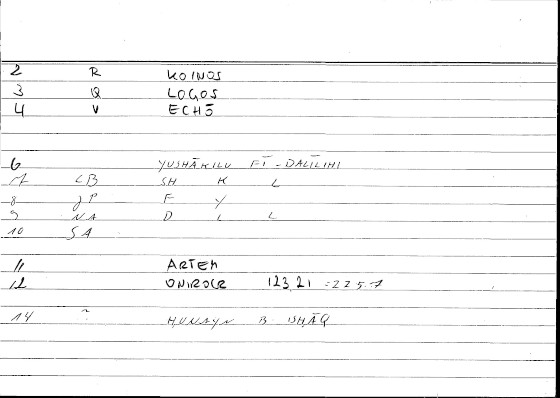 2 R KOINOS
3 Q LOGOS
4 V ECHŌ
6 YUSHĀKILU FĪ-DALĪLIHI
7 LB SH K L
8 JP F Y
9 NA D L L
10 SA
11 ARTEM
12 ONIROCR 123,21 = 225.1
14 ~ HUNAYN B ISHĀQ